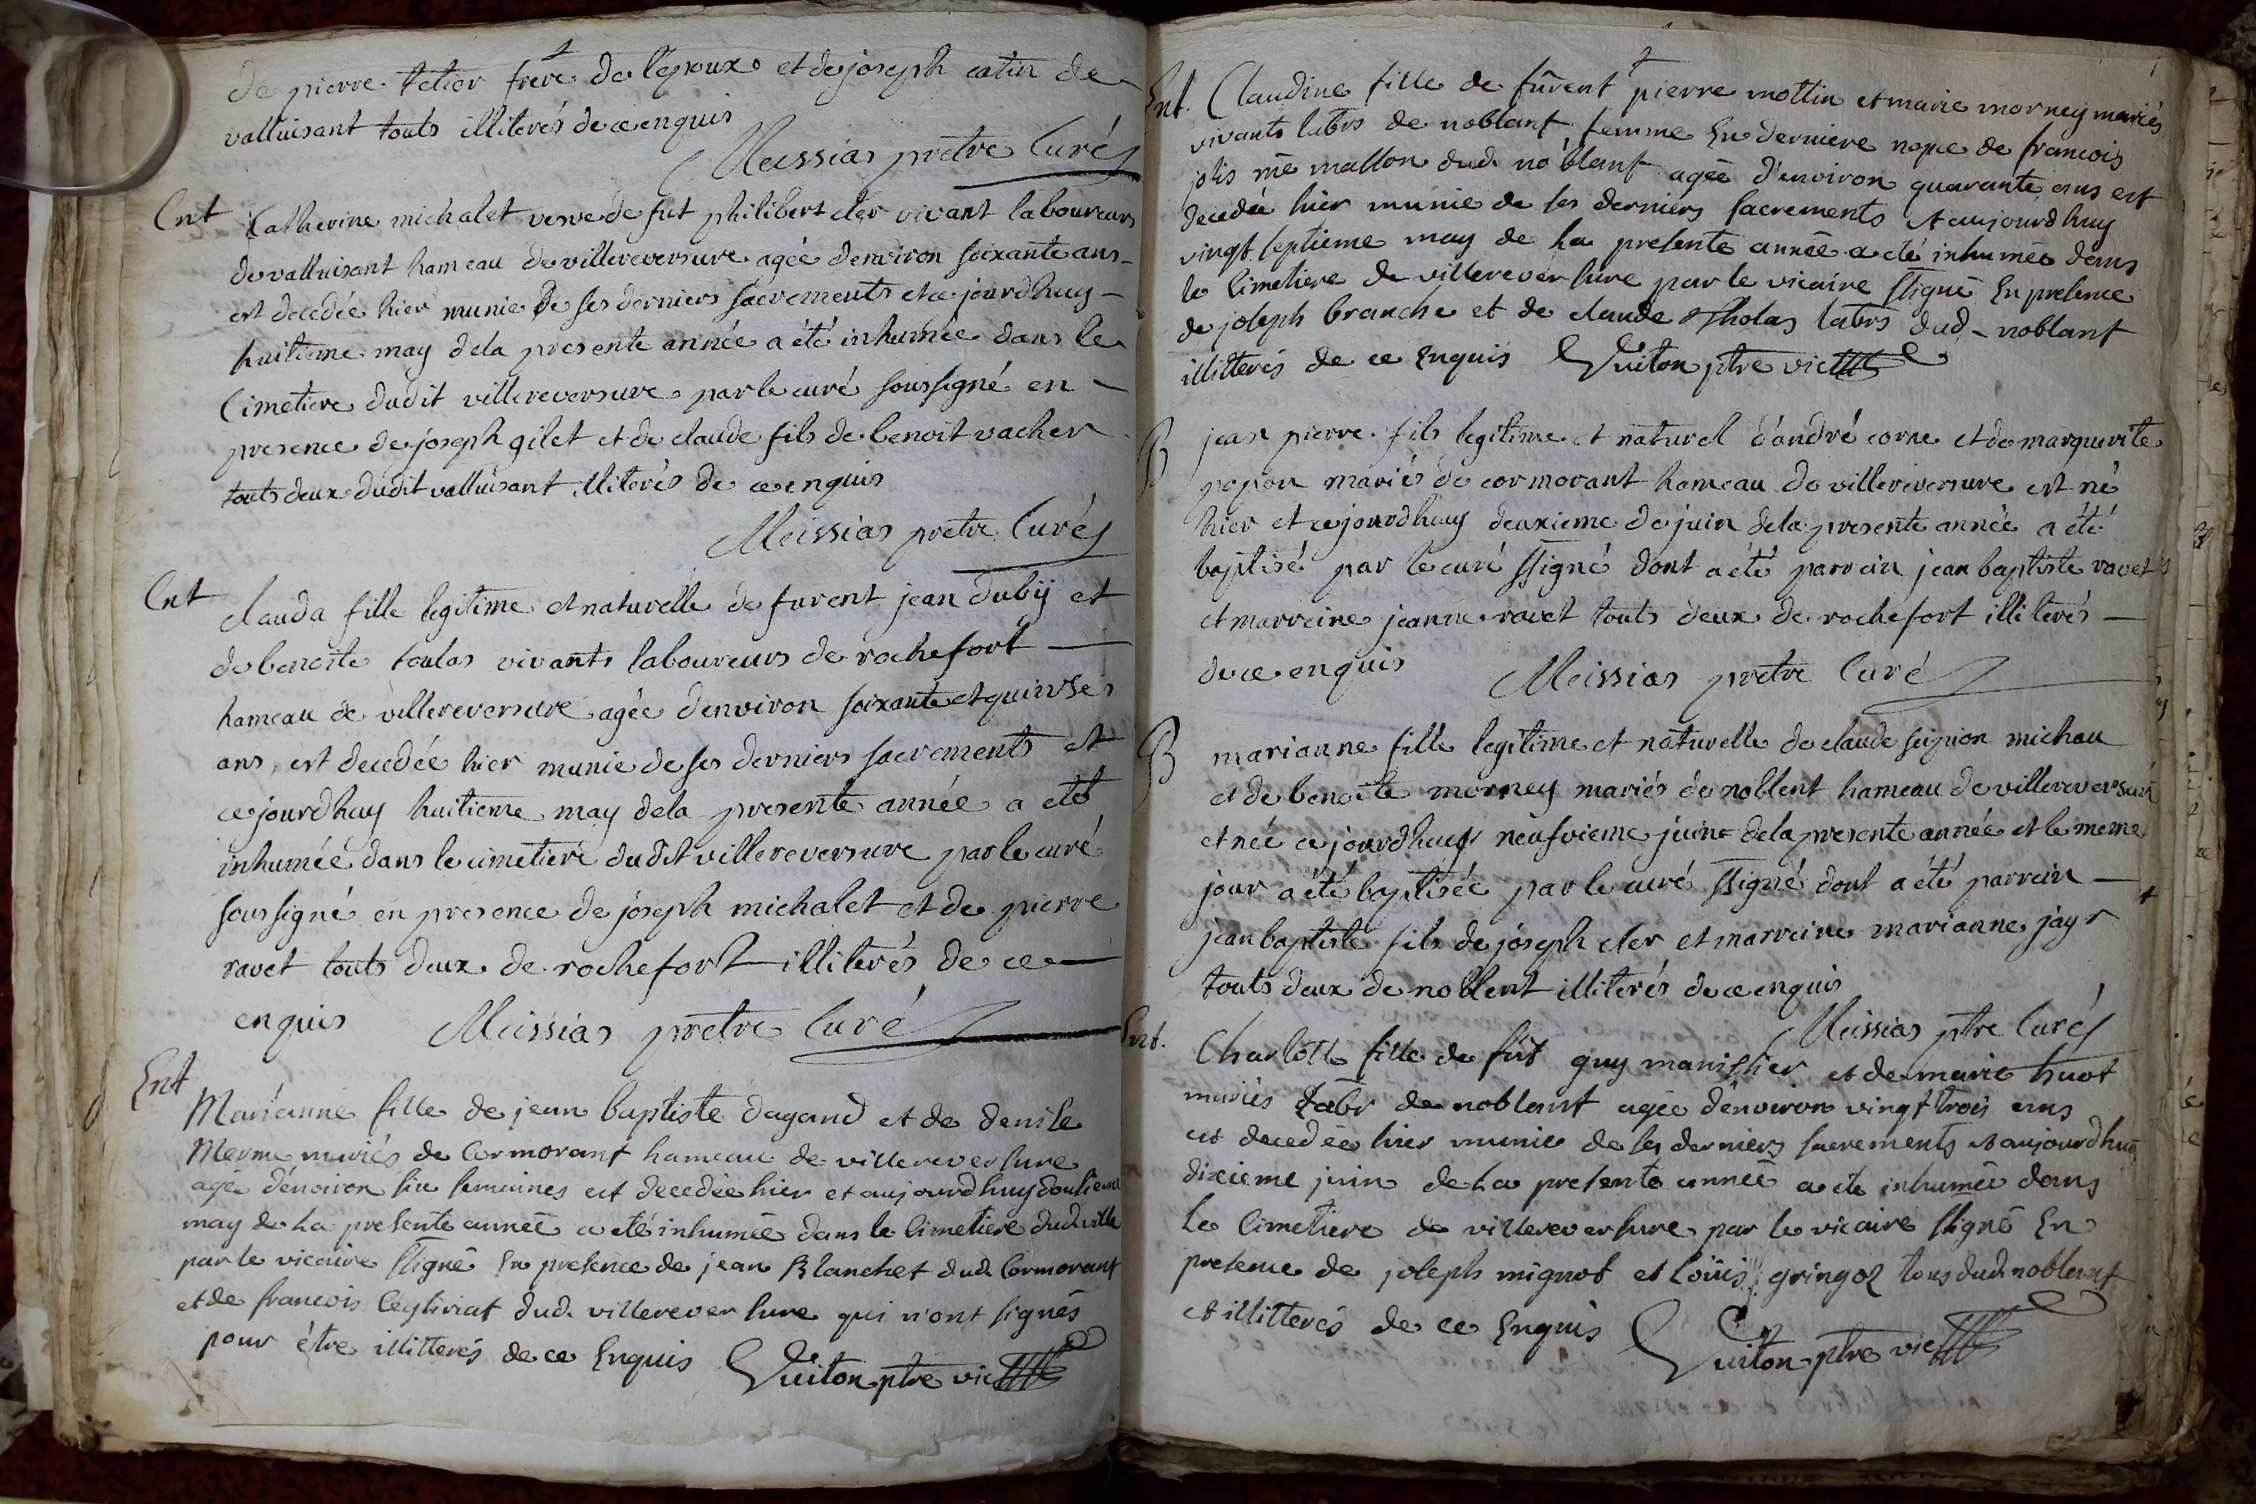 de pierre tetier frere de lepoux et de joseph catin de
valluisant touts illiterés de ce enquis
Meissias pretre Curé
Ent Catherine michalet veuve de fut philibert cler vivant laboureur
de valluisant hameau de villereversure agée denviron soixante ans
est decedée hier munie de ses derniers sacrements et ce jourdhuy
huitieme may dela presente année a été inhumée dans le
Cimetiere dudit villereversure par le curé soussigné en
presence de joseph gilet et de claude fils de benoit vacher
touts deux dudit valluisant illiterés de ce enquis
Meissias pretre Curé
Ent clauda fille legitime et naturelle de furent jean dubij et
de benoite toulas vivants laboureurs de rochefort
hameau de villereversure agée denviron soixante et quinse
ans, est decedée hier munie de ses derniers sacrements et
ce jourdhuy huitieme may dela presente année a eté
inhumée dans le cimetiere dudit villereversure par le curé
soussigné en presence de joseph michalet et de pierre
ravet touts deux de rochefort illiterés de ce
enquis Meissias pretre Curé
Ent Marianne fille de jean baptiste dagand et de denise
Merme mariés de Cormorant hameau de villereversure
agée d'environ six semaines est decedée hier et aujourdhuy dousieme
may de la presente année a eté inhumée dans le Cimetiere dud. ville
par le vicaire ssigné En presence de jean Blanchet dud. Cormorant
et de francois Ceyseriat dud. villereversure qui n'ont signés
pour étre illitterés de ce Enquis Guiton ptre vic
Ent. Claudine fille de fûrent pierre mottin et marie morney mariés
vivants labrs de noblant femme En derniere nopce de francois
jolis me masson dud. noblant agée d'environ quarante ans est
decedée hier munie de ses derniers sacrements et aujourdhuy
vingt septieme may de la presente année a eté inhumée dans
le Cimetiere de villereversure par le vicaire ssigné En presence
de joseph branche et de claude tholas labrs dud. noblant
illitterés de ce Enquis Guiton ptre vic
B jean pierre fils legitime et naturel d'andré corne et de marguerite
popon mariés de cormorant hameau de villereversure est né
hier et ce jourdhuy deuxieme de juin dela presente année a été
baptisé par le curé ssigné dont a été parrein jean baptiste ravet
et marreine jeanne ravet touts deux de rochefort illiterés
de ce enquis Meissias pretre Curé
B marianne fille legitime et naturelle de claude scipion michau
et de benoite morney mariés de noblent hameau de villereversure
et née ce jourdhuy neufvieme juin dela presente année et le meme
jour a été baptisée par le curé ssigné dont a été parrein
jean baptiste fils de joseph cler et marreine marianne jayr
touts deux de noblent illiterés de ce enquis
Meissias ptre Curé
Ent. Charlotte fille de fût guy manissier et de marie huot
mariés Labr de noblant agée d'environ vingt trois ans
est decedée hier munie de ses derniers sacrements et aujourdhuy
dixieme juin de la presente année a eté inhumée dans
le Cimetiere de villereversure par le vicaire ssigné En
presence de joseph mignot et Loüis gringoz tous dud. noblant
et illitterés de ce Enquis Guiton ptre vic